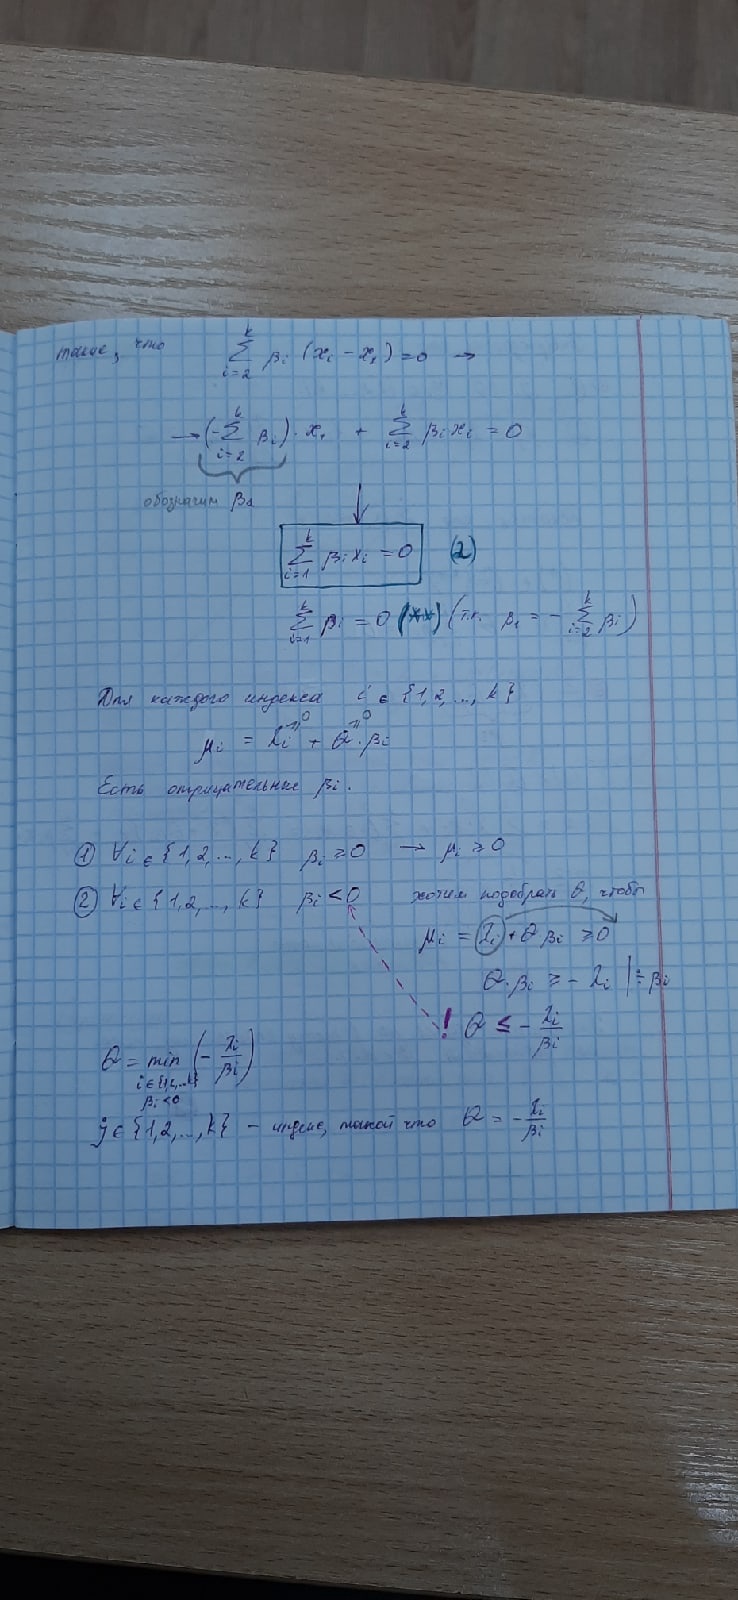 такие, что ∑_{i=2}^{k} βi (xi − x1) = 0 →
→ (−∑_{i=2}^{k} βi) · x1 + ∑_{i=2}^{k} βi xi = 0
обозначим β1
∑_{i=1}^{k} βi xi = 0 (2)
∑_{i=1}^{k} βi = 0 (**) (т.к. β1 = −∑_{i=2}^{k} βi)
Для каждого индекса i ∈ {1,2,...,k}
μi = λi + θ·βi
Есть отрицательные βi.
① ∀i ∈ {1,2,...,k} βi ≥ 0 → μi ≥ 0
② ∀i ∈ {1,2,...,k} βi < 0 хотим подобрать θ, чтобы
μi = λi + θ βi ≥ 0
θ·βi ≥ −λi | ÷ βi
! θ ≤ −λi/βi
θ = min_{i∈{1,2,...k} βi<0} (−λi/βi)
j ∈ {1,2,...,k} − индекс, такой что θ = −λi/βi